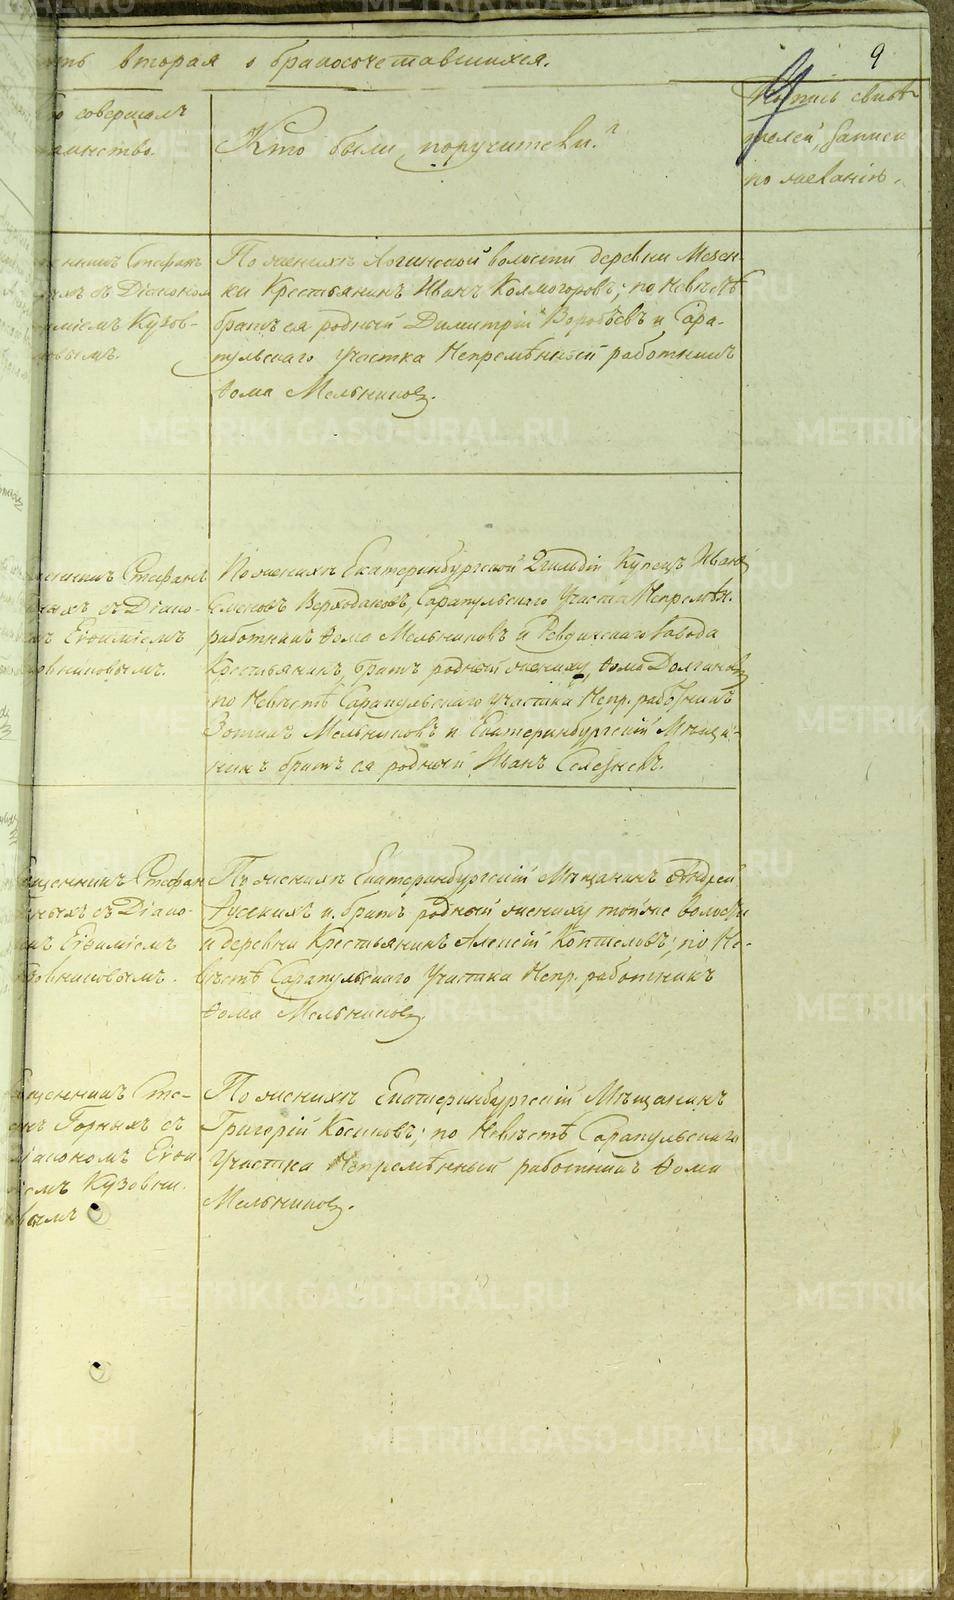 вторая о бракосочетавшихся.
9
совершалъ
таинство.
Кто были поручители?
свидѣ-
телей записи
по желанію.
Стефанъ
съ Діакономъ
Кузов-
По женихѣ Логиновой волости деревни Мезен-
ки Крестьянинъ Иванъ Колмогоровъ; по Невѣстѣ
братъ ея родный Димитрій Воробьевъ и Сара-
пульскаго участка Непремѣнный работникъ
Ѳома Мельниковъ.
Стефанъ
съ Діако-
Евѳиміемъ
По женихѣ Екатеринбургской 2 гильдіи Купецъ Иванъ
Семеновъ Сарапульскаго Участка Непремѣн.
работникъ Ѳома Мельниковъ и Ревдинскаго завода
Крестьянинъ, братъ родный жениху, Ѳома
по Невѣстѣ Сарапульскаго участка Непр. работникъ
Мельниковъ и Екатеринбургскій Мѣща-
нинъ братъ ея родный Иванъ Селезневъ.
Стефанъ
съ Діако-
Евѳиміемъ
Кузовниковымъ.
По женихѣ Екатеринбургскій Мѣщанинъ Андрей
Русскихъ и братъ родный жениху той же волости
и деревни Крестьянинъ Алексѣй Коптеловъ; по Не-
вѣстѣ Сарапульскаго Участка Непр. работникъ
Ѳома Мельниковъ.
Сте-
Горныхъ съ
Діакономъ Евѳи
міемъ Кузовни.
ковымъ
По женихѣ Екатеринбургскій Мѣщанинъ
Григорій Косиковъ; по Невѣстѣ Сарапульскаго
Участка Непремѣнный работникъ Ѳома
Мельниковъ.
METRIKI.GASO-URAL.RU